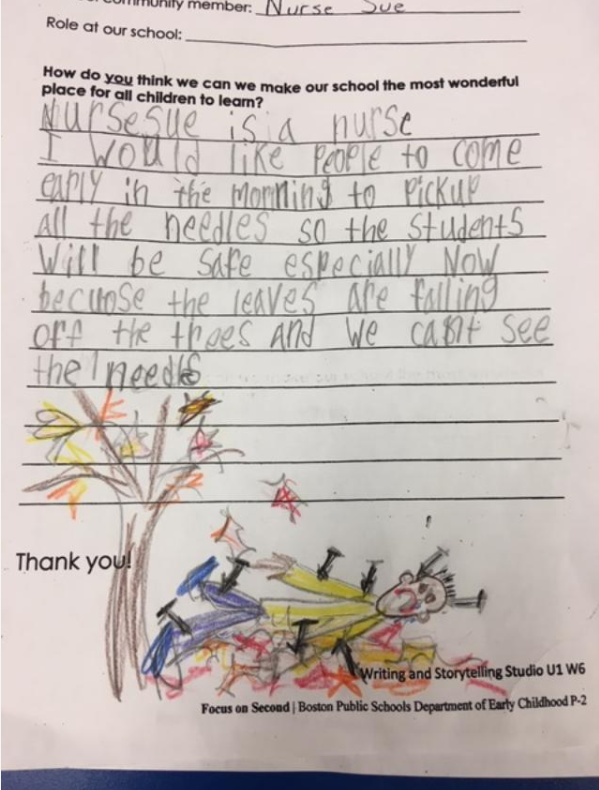 community member: Nurse Sue
Role at our school:
How do you think we can we make our school the most wonderful
place for all children to learn?
Nurse Sue is a nurse
I would like People to come
early in the morning to Pickup
All the needles so the students
Will be safe especially Now
becuose the leaves are falling
off the threes And we cant see
the needls
Thank you!
Writing and Storytelling Studio U1 W6
Focus on Second | Boston Public Schools Department of Early Childhood P-2